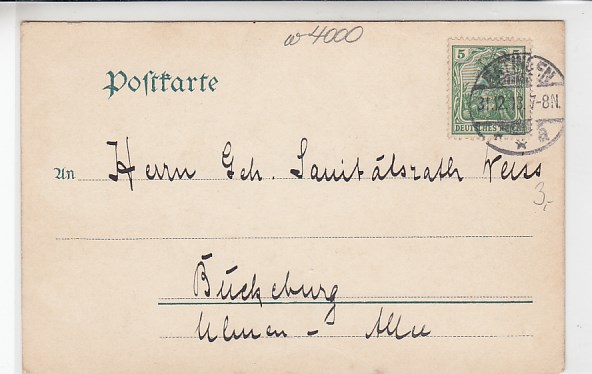 w 4000
Postkarte
5
DEUTSCHES REICH
31.12.13. 7-8N.
a
An Herrn Geh. Sanitätsrath Weiss
3,-
Bückeburg
Ulmen - Allee